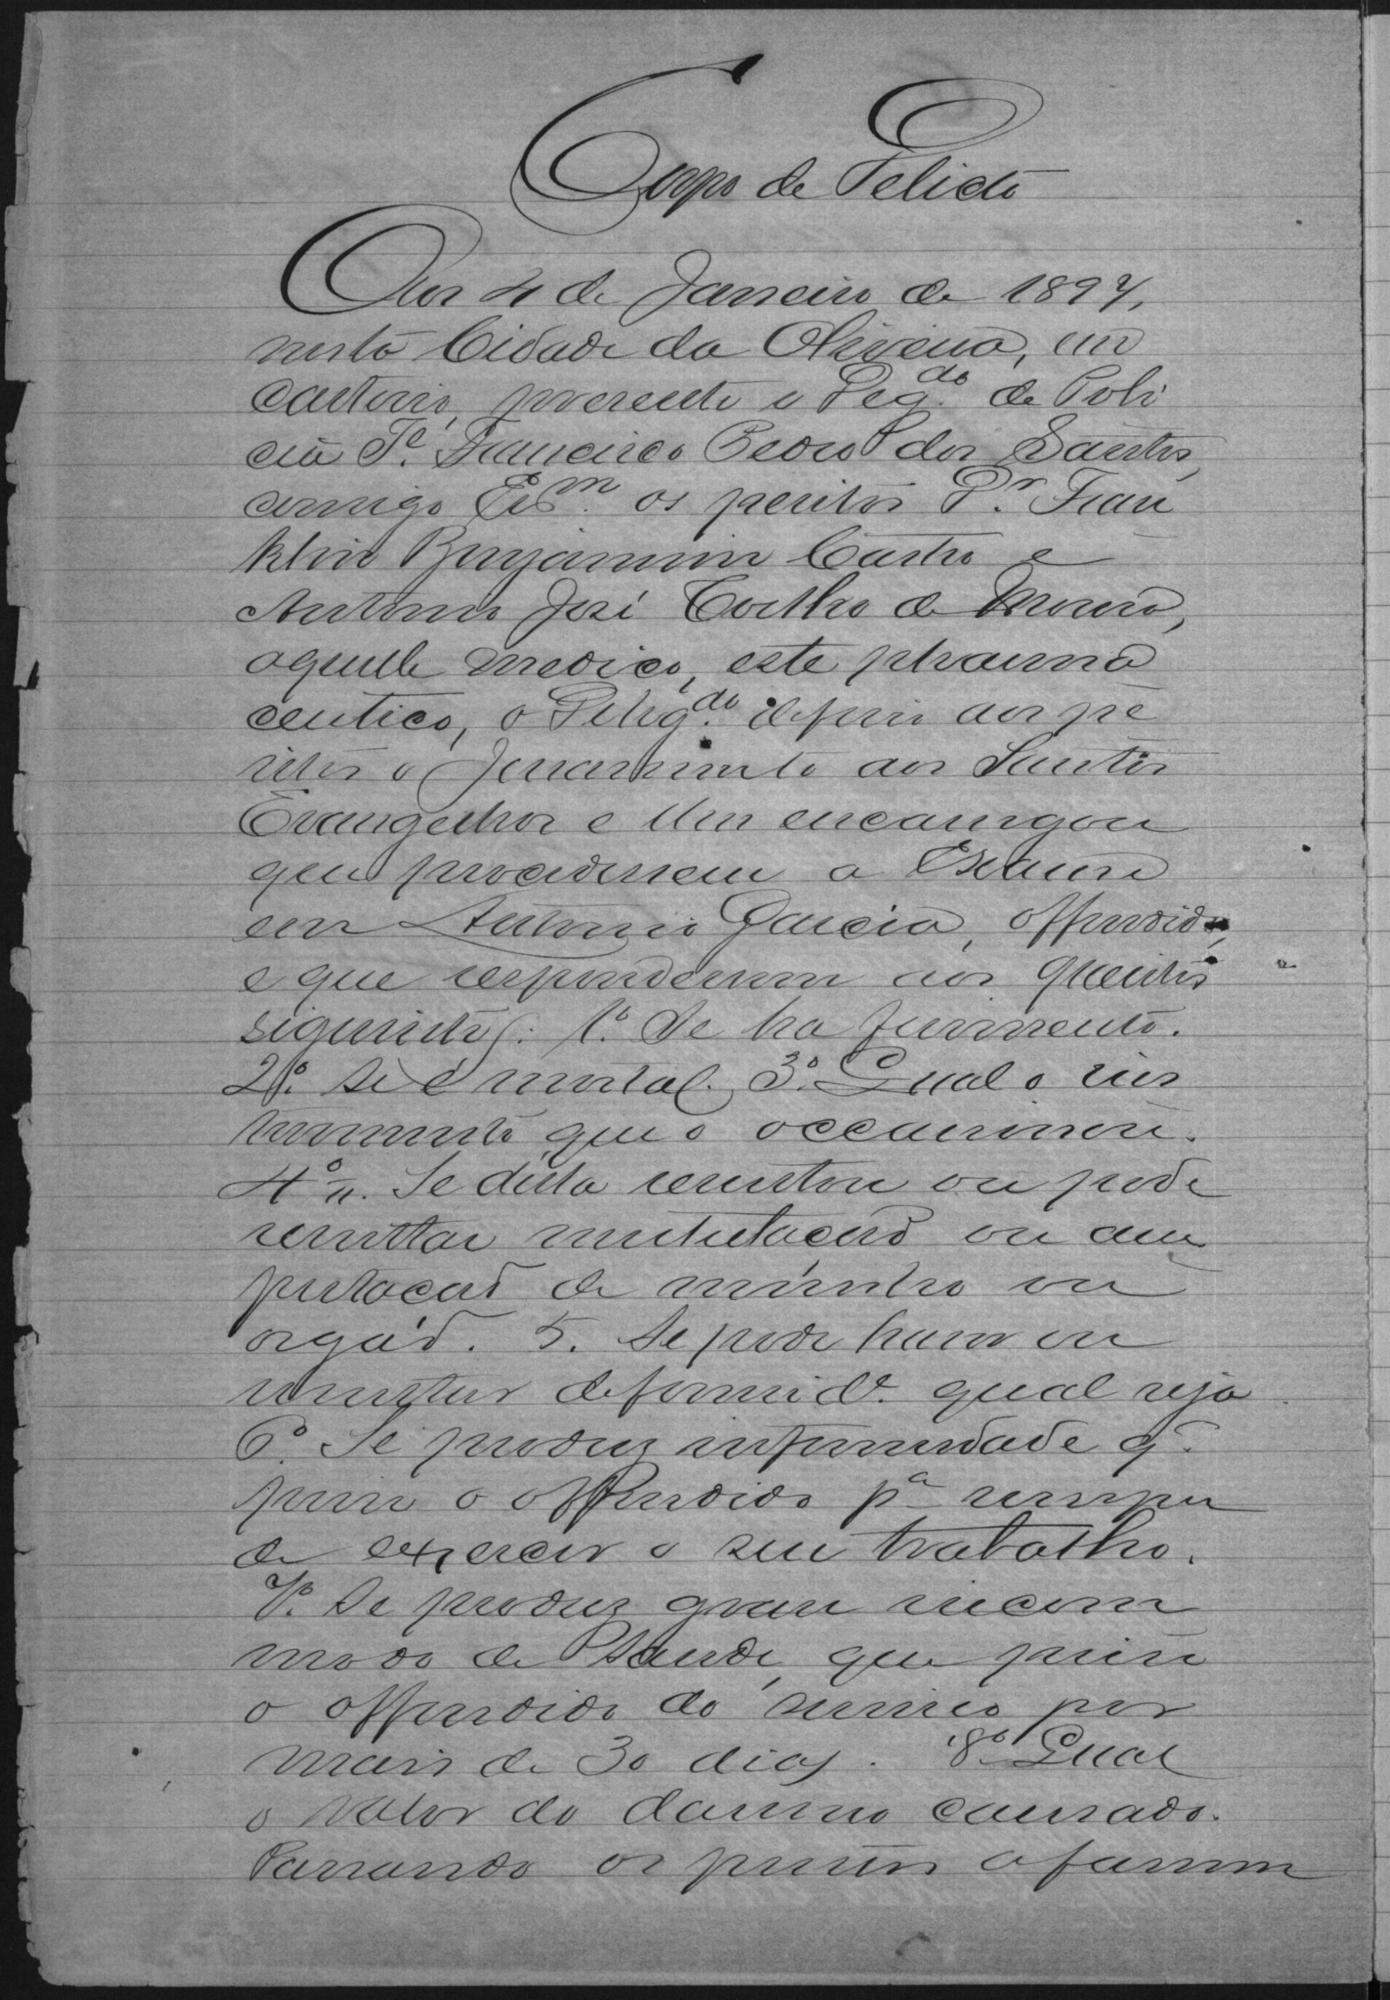 Corpo de Delicto
Aos 4 de Janeiro de 1897,
nesta Cidade da Oliveira, em
cartorio, presente o Deg.do de Poli
cia Te. Francisco Pedro dos Santos,
comigo Esm. os peritos Dr. Fran
klin Benjamim Castro e
Antonio José Coelho de Moura,
aquelle medico, este pharma
ceutico, o Delegdo. deferio aos pe
ritos o Juramento aos Santos
Evangelhos e lhes encarregou
que procedessem a Exame
em Antonio Garcia, offendido,
e que respondessem aos quesitos
seguintes: 1.º Se ha ferimento.
2º. se é mortal. 3º. Qual o ins
trumento que o occasionou.
4º. Se delle resultou ou pode
resultar mutilação ou am
putação de membro ou
orgão. 5. Se pode haver ou
resultar deformide. qual seja
6º. Se produz infermidade q.
prive o offendido pa sempre
de exercer o seu trabalho.
7º. Se produz grave incom
modo de saude, que prive
o offendido do serviço por
mais de 30 dias. 8º Qual
o valor do damno causado.
Passando os peritos a fazerem